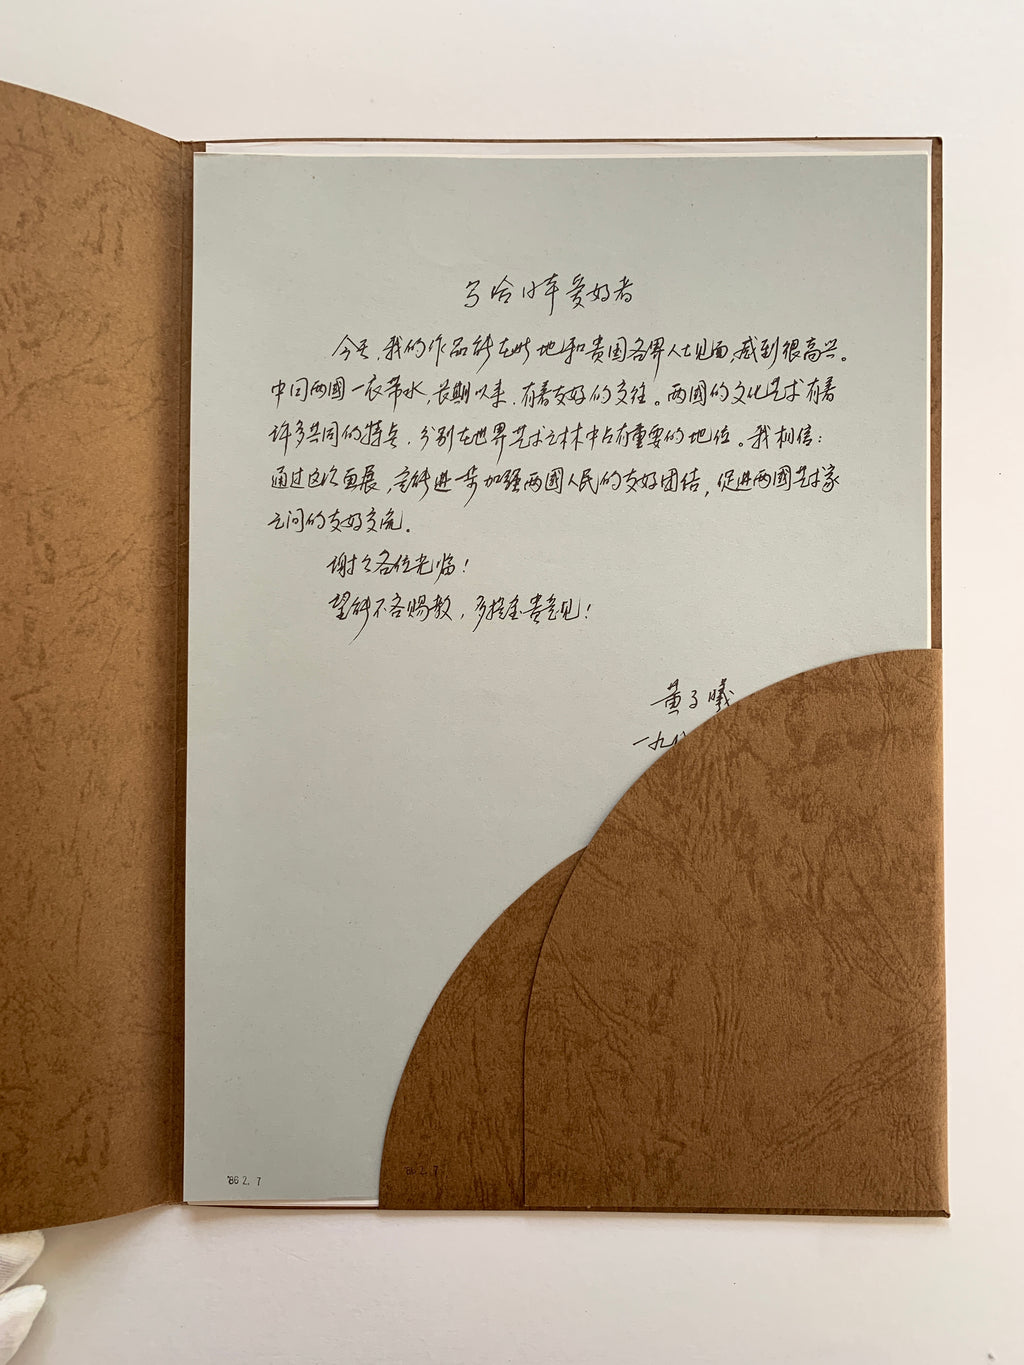 写给日本爱好者
今天,我的作品能在此地和贵国各界人士见面,感到很高兴。
中日两國一衣带水,长期以来,有着友好的交往。两國的文化艺术有着
许多共同的特点,分别在世界艺术之林中占有重要的地位。我相信:
通过这次画展,定能进一步加强两國人民的友好团结,促进两國艺术家
之间的友好交流。
谢谢各位光临!
望能不吝赐教,多提宝贵意见!
黄子曦
一九八
'86 2. 7
'86 2. 7